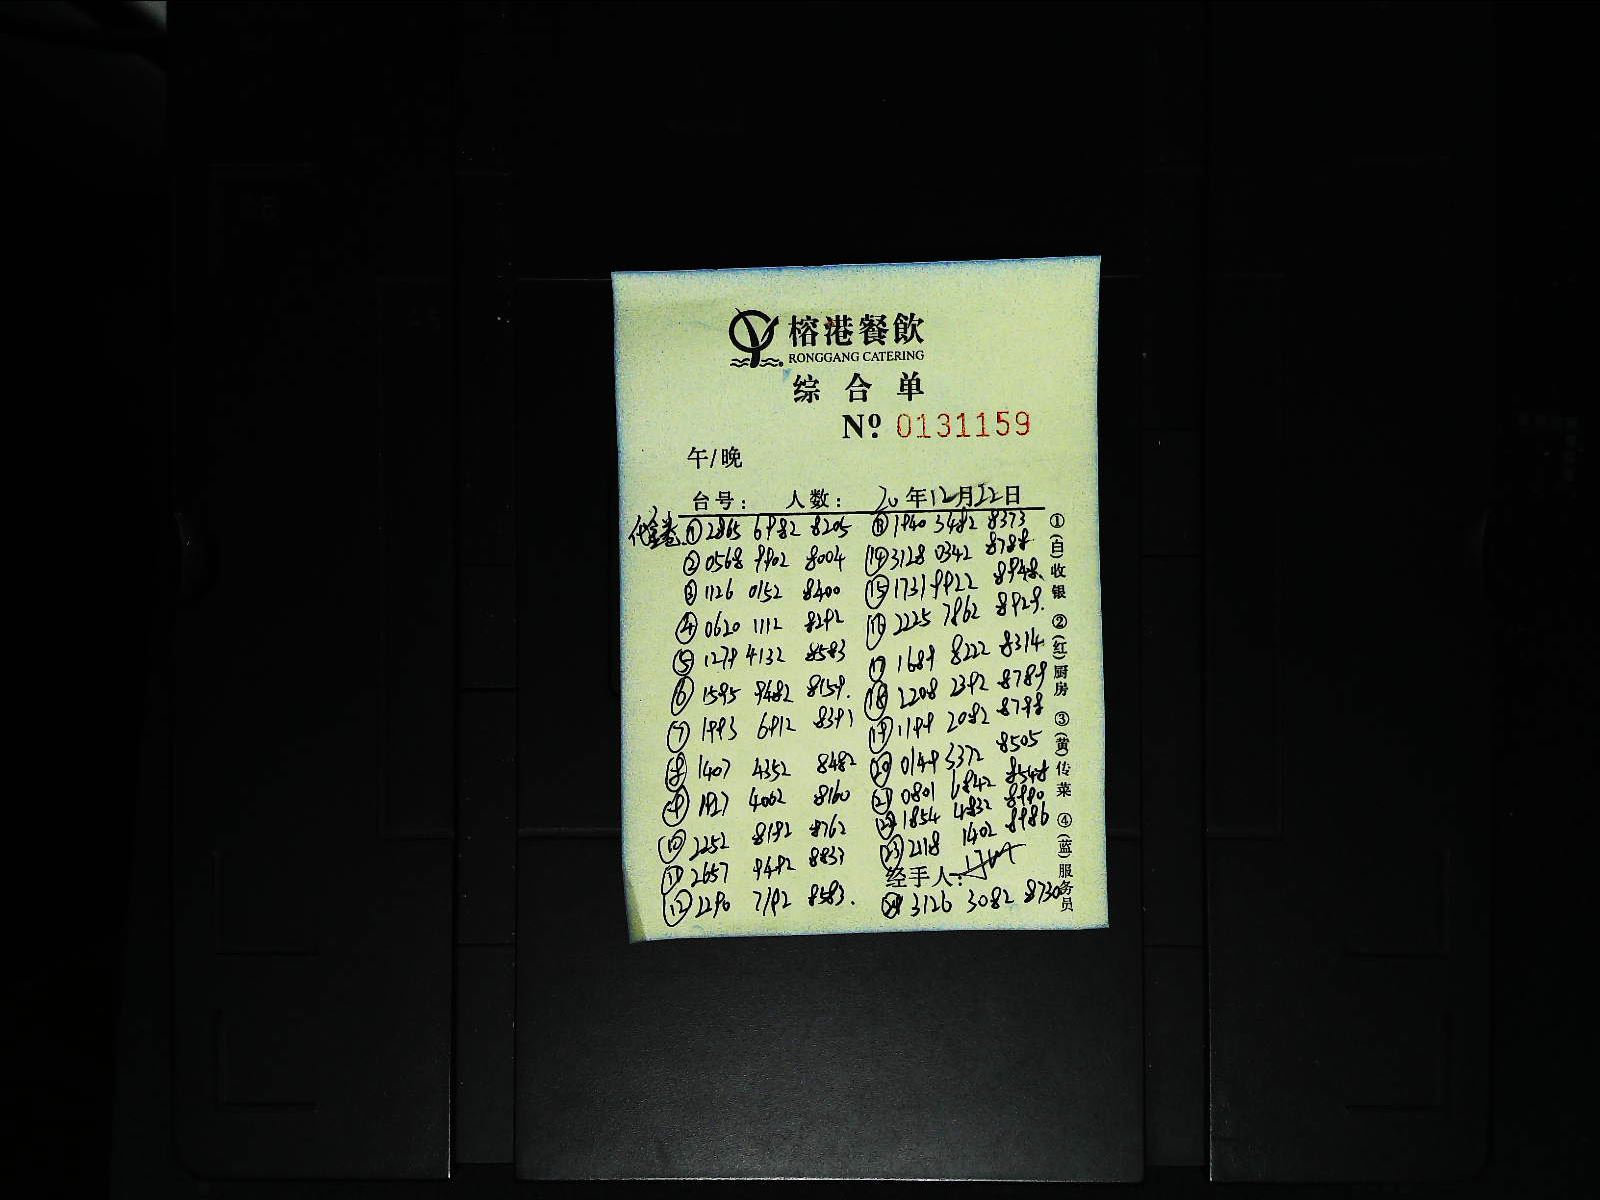 榕港餐飲
RONGGANG CATERING
综合单
Nº 0131159
午/晚
台号： 人数： 20年12月22日
代金卷
① 2865 6982 8205
② 0568 9902 8004
③ 1126 0152 8400
④ 0620 1112 8292
⑤ 1279 4132 8583
⑥ 1595 9482 8159.
⑦ 1993 6912 8391
⑧ 1407 4352 8482
⑨ 1927 4062 8160
⑩ 2252 8192 8762
⑪ 2657 9492 8833
⑫ 2290 7192 8583.
⑬ 1940 3482 8373
⑭ 3128 0342 8788
⑮ 1731 9922 8948.
⑯ 2225 7862 8929.
⑰ 1689 8222 8314
⑱ 2208 2392 8789
⑲ 1199 2082 8798
⑳ 0149 5372 8505
㉑ 0801 6842 8548
㉒ 1854 4832 8990
㉓ 2118 1402 8986
经手人：
㉔ 3126 3082 8730
①(白)收银 ②(红)厨房 ③(黄)传菜 ④(蓝)服务员